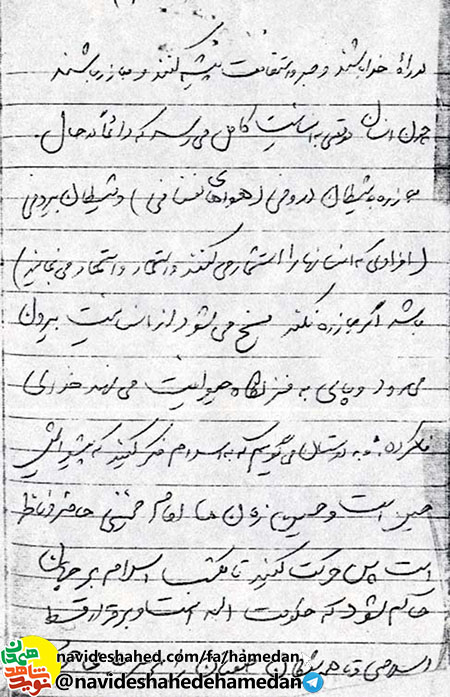 در راه خدا باشند و صبر و استقامت پیشه کنند و مبارز باشند
چون انسان وقتی به انسانیت کامل می رسد که دائماً در حال
مبارزه با شیطان درونی (هواهای نفسانی) و شیطان بیرونی
(افرادی که انسانها را استثمار می کنند و استعمار و استحمار می نمایند)
باشد اگر مبارزه نکند مسخ می شود از انسانیت بیرون
می رود و پای به حیوانیت می نهد خدای
نکرده. به دوستان می گویم که به اسلام فکر کنید که پیشوایش
حسین است و حسین زمان ما امام خمینی حاضر و ناظر
است پس حرکت کنید تا مکتب اسلام بر جهان
حاکم شود که حکومت الله است و برقراری قسط
اسلامی و
نوید شاهد همدان
navideshahed.com/fa/hamedan
@navideshahedehamedan